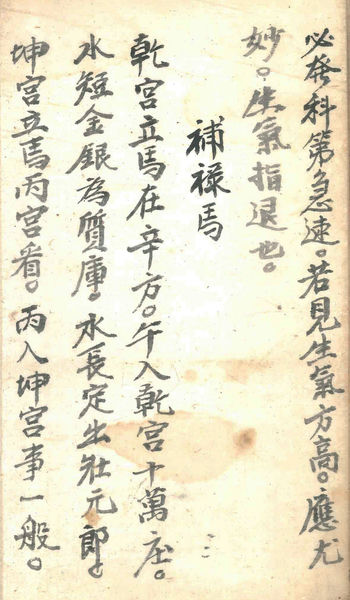 必發科第急速。若見生氣方高。應尤
妙。生氣指退也。
補祿馬
乾宮立馬在辛方。午入乾宮十萬庄。
水短金銀為質庫。水長定出壯元郎。
坤宮立馬丙宮看。丙入坤宮事一般。